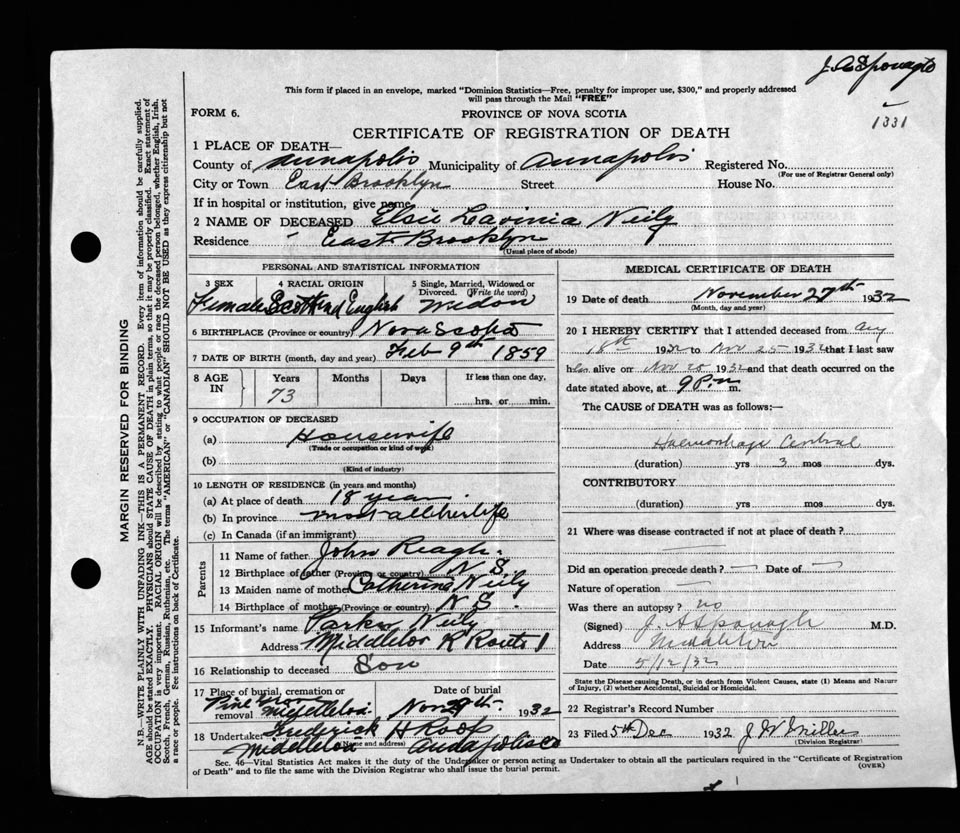 J. A. Sponagle
1331
This form if placed in an envelope, marked "Dominion Statistics—Free, penalty for improper use, $300," and properly addressed
will pass through the Mail "FREE"
FORM 6.
PROVINCE OF NOVA SCOTIA
CERTIFICATE OF REGISTRATION OF DEATH
1 PLACE OF DEATH—
County of Annapolis Municipality of Annapolis Registered No.
(For use of Registrar General only)
City or Town East Brooklyn Street House No.
If in hospital or institution, give name
2 NAME OF DECEASED Elsie Lavinia Neily
Residence East Brooklyn
(Usual place of abode)
PERSONAL AND STATISTICAL INFORMATION
3 SEX
Female
4 RACIAL ORIGIN
Scotch and English
5 Single, Married, Widowed or
Divorced. (Write the word)
Widow
6 BIRTHPLACE (Province or country) Nova Scotia
7 DATE OF BIRTH (month, day and year) Feb 9th 1859
8 AGE IN
Years Months Days If less than one day,
73
hrs. or min.
9 OCCUPATION OF DECEASED
(a) Housewife
(Trade or occupation or kind of work)
(b)
(Kind of industry)
10 LENGTH OF RESIDENCE (in years and months)
(a) At place of death 18 years
(b) In province most all her life
(c) In Canada (if an immigrant)
Parents
11 Name of father John Reagh
12 Birthplace of father (Province or country) N S.
13 Maiden name of mother Catherine Neily
14 Birthplace of mother (Province or country) N S
15 Informant's name Parker Neily
Address Middleton R Route 1
16 Relationship to deceased Son
17 Place of burial, cremation or
removal Pine Grove Middleton
Date of burial
Nov 29th 1932
18 Undertaker Frederick H Roop
(Name and address)
Middleton Annapolis Co
MEDICAL CERTIFICATE OF DEATH
19 Date of death November 27th 1932
(Month, day and year)
20 I HEREBY CERTIFY that I attended deceased from Aug
18th 1932 to Nov 25 1932 that I last saw
her alive on Nov 25 1932 and that death occurred on the
date stated above, at 9 P.m m.
The CAUSE of DEATH was as follows:—
Haemorrhage Cerebral
(duration) yrs 3 mos dys.
CONTRIBUTORY
(duration) yrs mos dys.
21 Where was disease contracted if not at place of death?
Did an operation precede death? — Date of —
Nature of operation —
Was there an autopsy? no
(Signed) J. A Sponagle M.D.
Address Middleton
Date 5/12/32
State the Disease causing Death, or in death from Violent Causes, state (1) Means and Nature
of Injury, (2) whether Accidental, Suicidal or Homicidal.
22 Registered Record Number
23 Filed 5th Dec 1932 J W Miller
(Division Registrar)
Sec. 46—Vital Statistics Act makes it the duty of the Undertaker or person acting as Undertaker to obtain all the particulars required in the "Certificate of Registration
of Death" and to file the same with the Division Registrar who shall issue the burial permit.
(OVER)
MARGIN RESERVED FOR BINDING
N.B.—WRITE PLAINLY WITH UNFADING INK—THIS IS A PERMANENT RECORD. Every item of information should be carefully supplied.
AGE should be stated EXACTLY. PHYSICIANS should STATE CAUSE OF DEATH in plain terms, so that it may be properly classified. Exact statement of
OCCUPATION is very important. RACIAL ORIGIN will be described by stating to what people or race the deceased person belonged, whether English, Irish,
Scotch, French, German, Russian, Ruthenian, etc. The terms "AMERICAN" or "CANADIAN" SHOULD NOT BE USED as they express citizenship but not
a race or people. See instructions on back of Certificate.